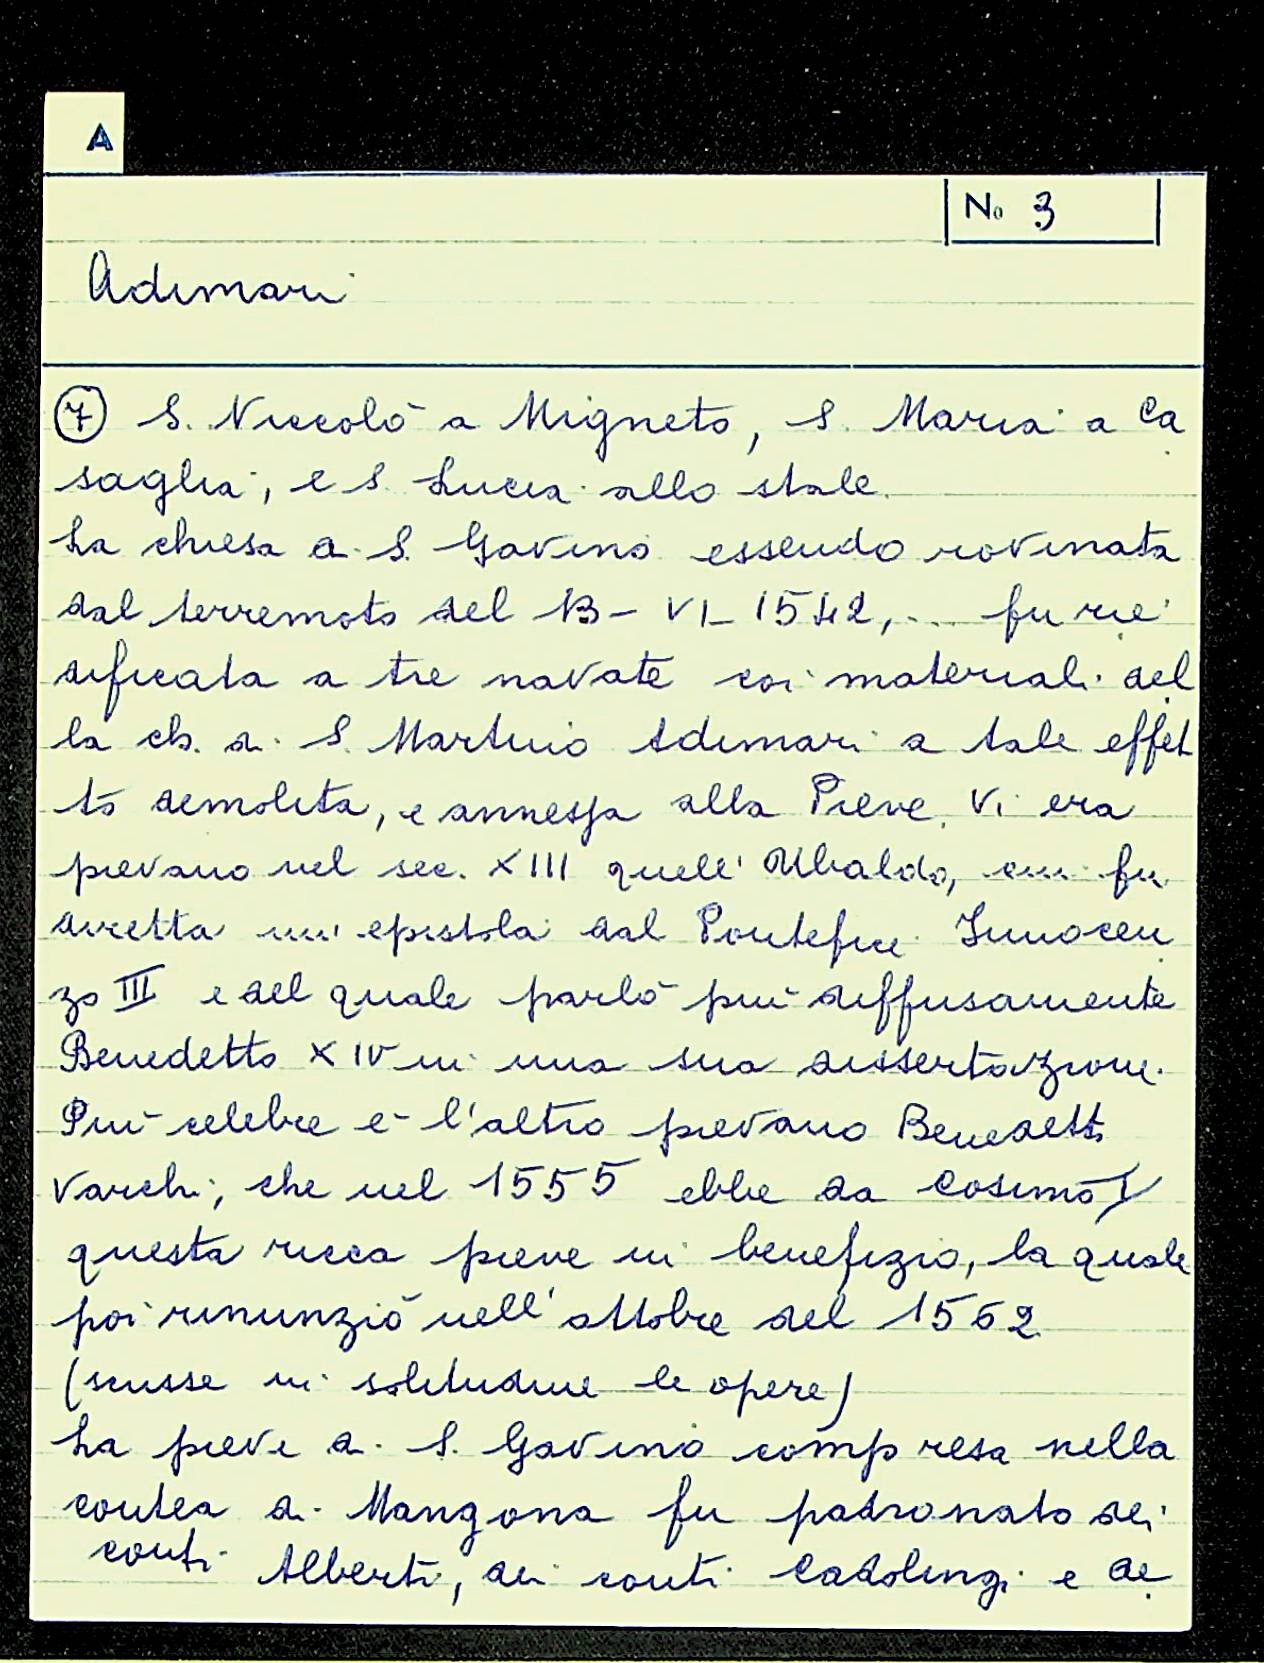 A
No 3
Adimari
7 S. Niccolò a Migneto, S. Maria a Ca
saglia, e S. Lucia allo stale
La chiesa di S. Gavino essendo rovinata
dal terremoto del 13 - VI - 1542, ... fu rie
dificata a tre navate coi materiali del
la ch. di S. Martino Adimari a tale effet
to demolita, e annessa alla Pieve. Vi era
pievano nel sec. XIII quell' Ubaldo, cui fu
diretta un' epistola dal Pontefice Innocen
zo III e del quale parlò più diffusamente
Benedetto XIV in una sua dissertazione.
Più celebre è l'altro pievano Benedetto
Varchi, che nel 1555 ebbe da Cosimo I
questa ricca pieve in benefizio, la quale
poi rinunziò nell' ottobre del 1562
(scrisse in solitudine le opere)
La pieve di S. Gavino compresa nella
contea di Mangona fu patronato dei
conti Alberti, dei conti Cadolingi e de